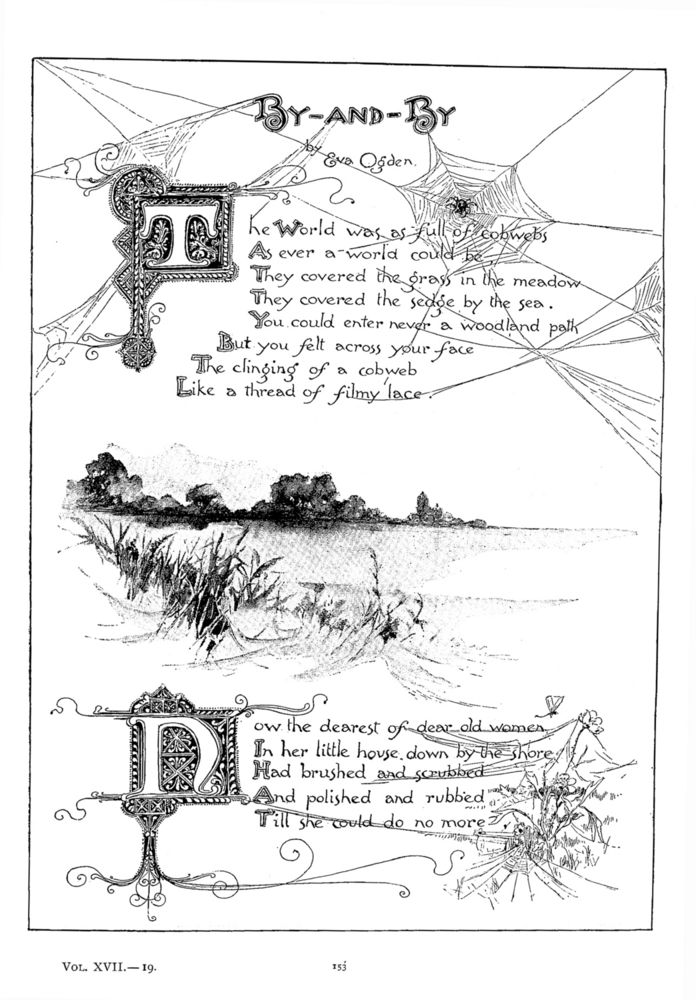 By-and-By
by Eva Ogden.
The World was as full of cobwebs
As ever a world could be,
They covered the grass in the meadow
They covered the sedge by the sea.
You could enter never a woodland path
But you felt across your face
The clinging of a cobweb
Like a thread of filmy lace.
Now the dearest of dear old women,
In her little house, down by the shore
Had brushed and scrubbed
And polished and rubbed
Till she could do no more
Vol. XVII.—19.
153